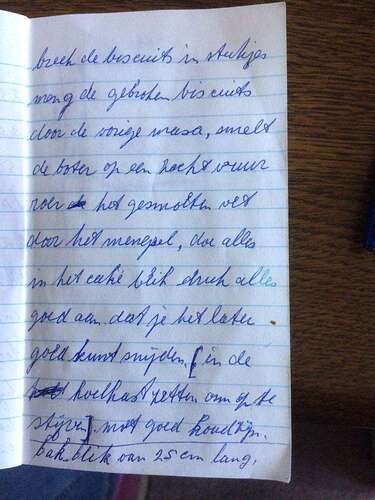 breek de biscuits in stukjes
meng de gebroken biscuits
door de vorige massa, smelt
de boter op een zacht vuur
roer het gesmolten vet
door het mengsel, doe alles
in het cake blik druk alles
goed aan. dat je het later
goed kunt snijden. [in de
koelkast zetten om op te
stijven] moet goed koud zijn.
bak blik van 25 cm lang.